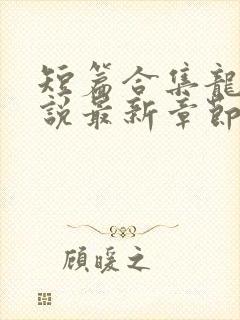 短篇合集龍
說最新章節
顾暖之